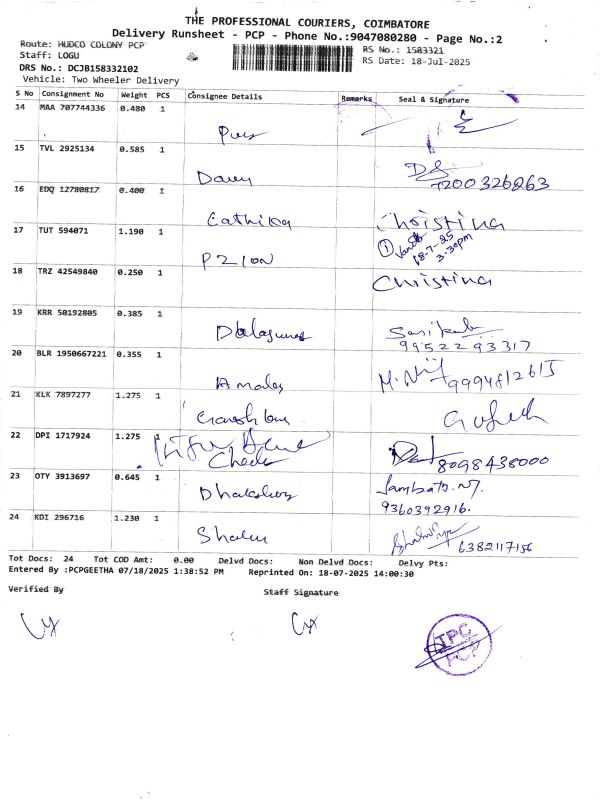 THE PROFESSIONAL COURIERS, COIMBATORE
Delivery Runsheet - PCP - Phone No.:9047080280 - Page No.:2
Route: HUDCO COLONY PCP
RS No.: 1583321
Staff: LOGU
RS Date: 18-Jul-2025
DRS No.: DCJB158332102
Vehicle: Two Wheeler Delivery
S No Consignment No Weight PCS Consignee Details Remarks Seal & Signature
14 MAA 707744336 0.480 1
15 TVL 2925134 0.585 1
7200326263
16 EDQ 12780817 0.400 1
Cathika Christina
17 TUT 594071 1.190 1
18-7-25
3.30pm
PZION
18 TRZ 42549840 0.250 1
Christina
19 KRR 50192805 0.385 1
9952293317
20 BLR 1950667221 0.355 1
9994812615
21 KLK 7897277 1.275 1
22 DPI 1717924 1.275 1
8098438000
23 OTY 3913697 0.645 1
9360392916.
24 KDI 296716 1.230 1
6382117156
Tot Docs: 24 Tot COD Amt: 0.00 Delvd Docs: Non Delvd Docs: Delvy Pts:
Entered By :PCPGEETHA 07/18/2025 1:38:52 PM Reprinted On: 18-07-2025 14:00:30
Verified By Staff Signature
TPC
PCP